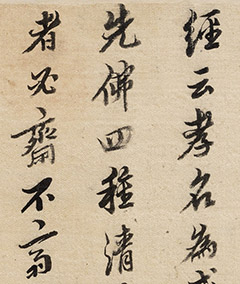 經云孝名為戒
先佛四種清
者必齋不